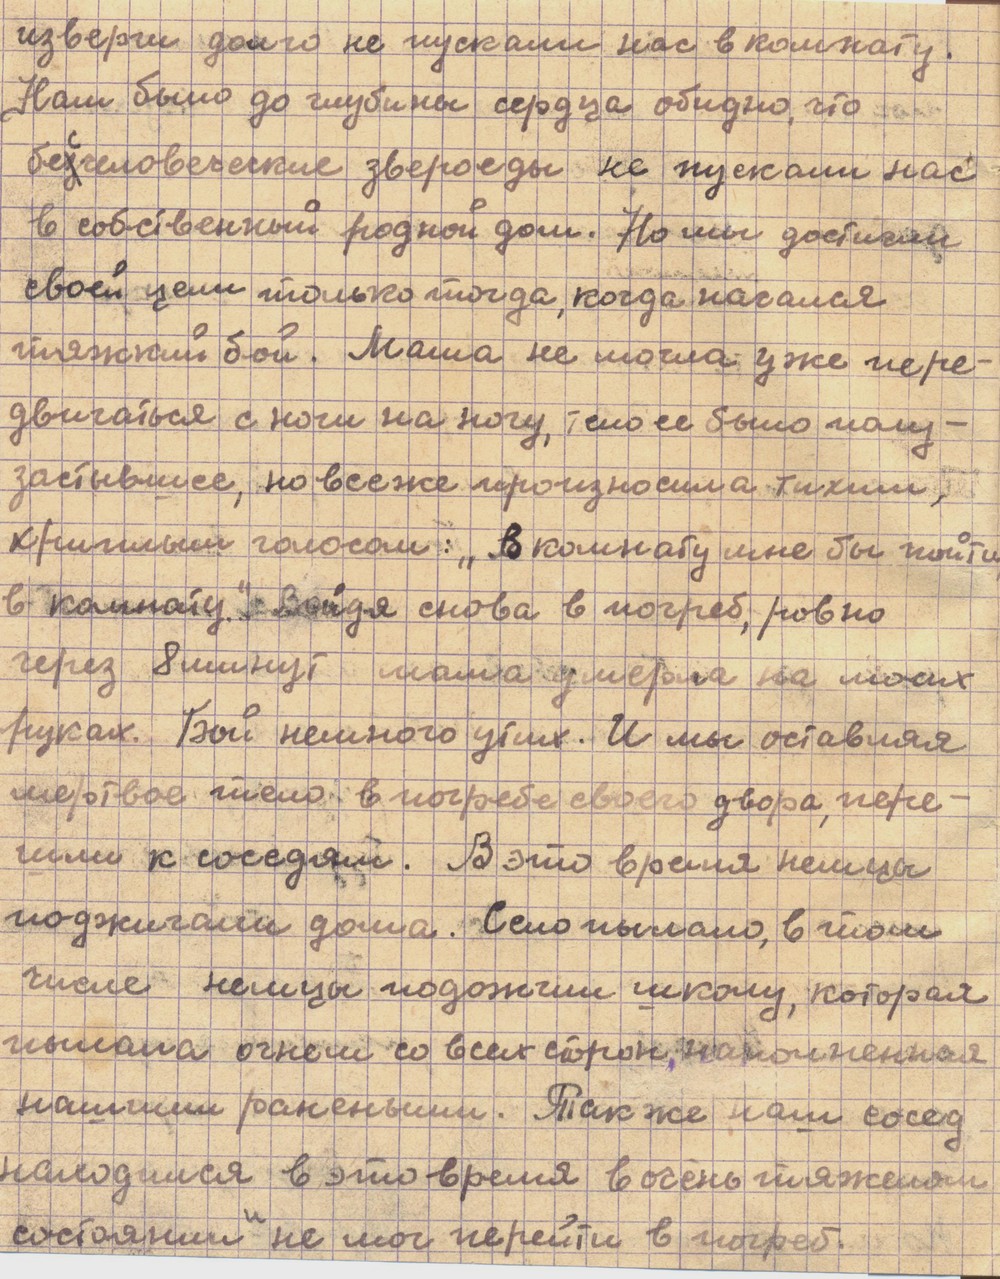 изверги долго не пускали нас в комнату.
Нам было до глубины сердца обидно, что
бесчеловеческие звероеды не пускали нас
в собственный родной дом. Но мы достигли
своей цели только тогда, когда начался
тяжкий бой. Мама не могла уже пере-
двигаться с ноги на ногу, тело ее было полу-
застывшее, но всеже произносила тихим,
хриплым голосом: „В комнату мне бы пойти
в комнату." Зайдя снова в погреб, ровно
через 8 минут мама умерла на моих
руках. Бой немного утих. И мы оставляя
мертвое тело в погребе своего двора, пере-
шли к соседям. В это время немцы
поджигали дома. Село пылало, в том
числе немцы подожгли школу, которая
пылала огнем со всех сторон, наполненная
нашими ранеными. Также наш сосед
находился в это время в очень тяжелом
состоянии и не мог перейти в погреб.